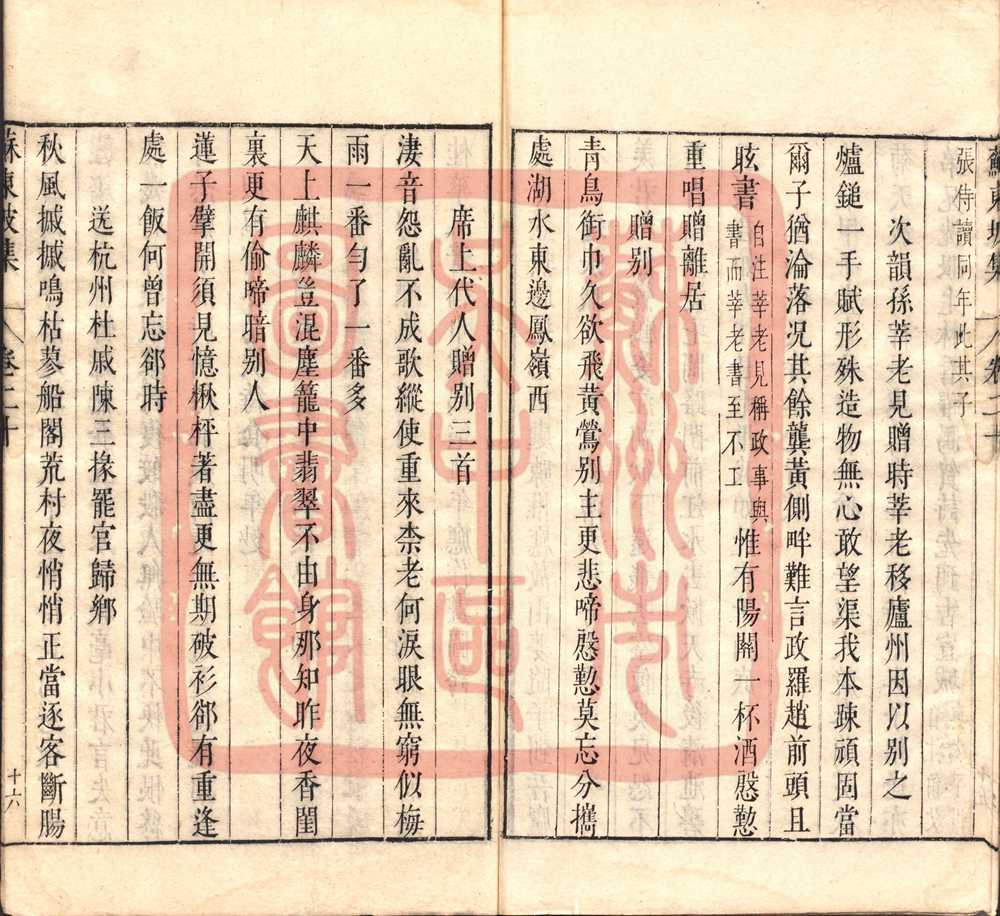 蘇東坡集 卷二十
張侍讀同年此其子
次韻孫莘老見贈時莘老移廬州因以别之
爐鎚一手賦形殊造物無心敢望渠我本疎頑固當
爾子猶淪落况其餘龔黃側畔難言政羅趙前頭且
眩書自注莘老見稱政事與書而莘老書至不工惟有陽關一杯酒慇懃
重唱贈離居
贈别
青鳥銜巾久欲飛黃鶯别主更悲啼慇懃莫忘分攜
處湖水東邊鳳嶺西
席上代人贈别三首
淒音怨亂不成歌縱使重來柰老何淚眼無窮似梅
雨一番勻了一番多
天上麒麟豈混塵籠中翡翠不由身那知昨夜香閨
裏更有偷啼暗别人
蓮子擘開須見憶楸枰著盡更無期破衫郤有重逢
處一飯何曾忘郤時
送杭州杜戚陳三掾罷官歸鄉
秋風摵摵鳴枯蓼船閣荒村夜悄悄正當逐客斷腸
蘇東坡集 卷二十
十六
蘇州市
吳中區
圖書館